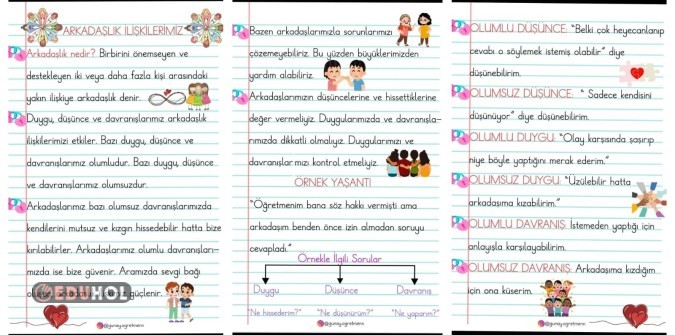 ARKADAŞLIK İLİŞKİLERİMİZ
Arkadaşlık nedir? Birbirini önemseyen ve
destekleyen iki veya daha fazla kişi arasındaki
yakın ilişkiye arkadaşlık denir.
Duygu, düşünce ve davranışlarımız arkadaşlık
ilişkilerimizi etkiler. Bazı duygu, düşünce ve
davranışlarımız olumludur. Bazı duygu, düşünce
ve davranışlarımız olumsuzdur.
Arkadaşlarımız bazı olumsuz davranışlarımızda
kendilerini mutsuz ve kızgın hissedebilir hatta bize
kırılabilirler. Arkadaşlarımız olumlu davranışları-
mızda ise bize güvenir. Aramızda sevgi bağı
güçlenir.
EDUHOL
Bazen arkadaşlarımızla sorunlarımızı
çözemeyebiliriz. Bu yüzden büyüklerimizden
yardım alabiliriz.
Arkadaşlarımızın düşüncelerine ve hissettiklerine
değer vermeliyiz. Duygularımızda ve davranışla-
rımızda dikkatli olmalıyız. Duygularımızı ve
davranışlarımızı kontrol etmeliyiz.
ÖRNEK YAŞANTI
"Öğretmenim bana söz hakkı vermişti ama
arkadaşım benden önce izin almadan soruyu
cevapladı."
Örnekle İlgili Sorular
Duygu Düşünce Davranış
"Ne hissederim?" "Ne düşünürüm?" "Ne yaparım?"
@gunay.ogretmenn
OLUMLU DÜŞÜNCE: "Belki çok heyecanlanıp
cevabı o söylemek istemiş olabilir" diye
düşünebilirim.
OLUMSUZ DÜŞÜNCE: " Sadece kendisini
düşünüyor" diye düşünebilirim.
OLUMLU DUYGU: "Olay karşısında şaşırıp
niye böyle yaptığını merak ederim."
OLUMSUZ DUYGU: "Üzülebilir hatta
arkadaşıma kızabilirim."
OLUMLU DAVRANIŞ: İstemeden yaptığı için
anlayışla karşılayabilirim.
OLUMSUZ DAVRANIŞ: Arkadaşıma kızdığım
için ona küserim.
@gunay.ogretmenn